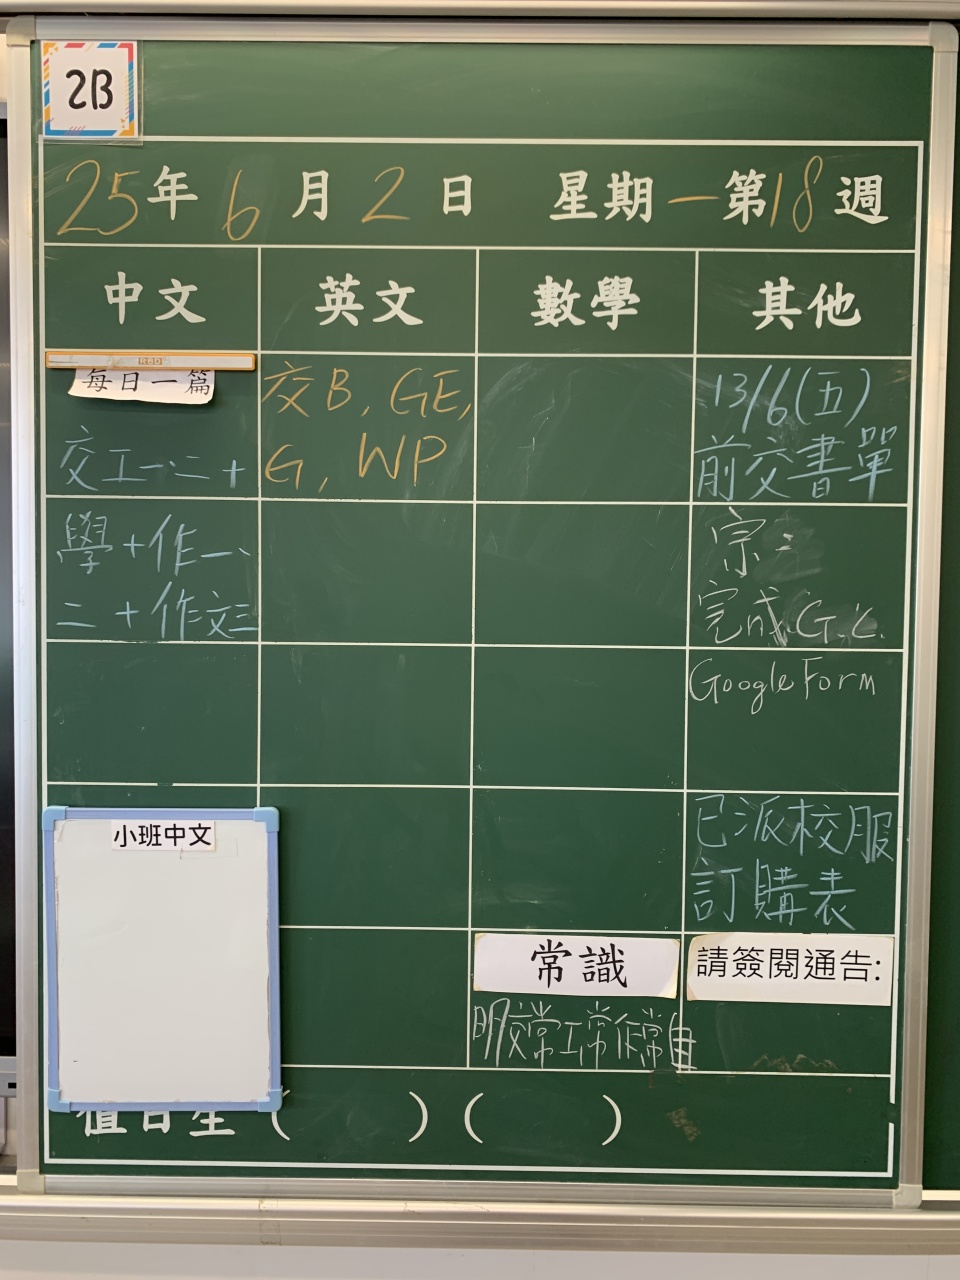 2B
25年6月2日 星期一第18週
中文 英文 數學 其他
每日一篇
交工一、二+
學+作一、
二+作文三
交B, GE,
G, WP
13/6(五)
前交書單
宗:
完成G.C.
Google Form
已派校服
訂購表
小班中文
常識
明交常工常作常自
請簽閱通告:
值日生 ( ) ( )